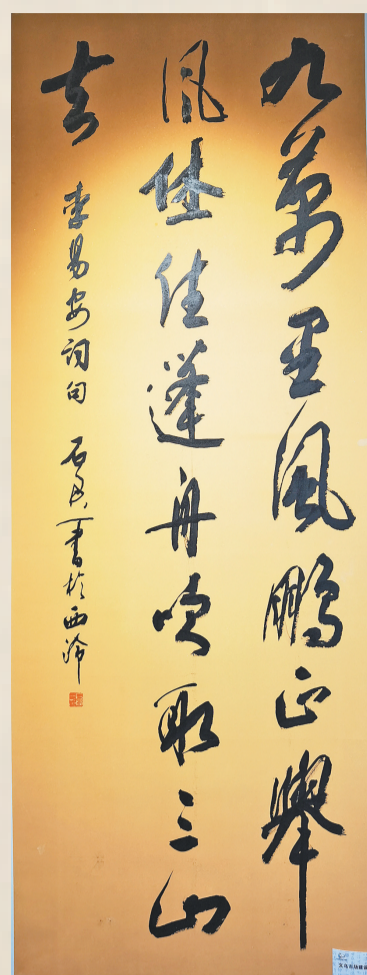 九萬里風鵬正舉
風休住蓬舟吹取三山
去
李易安詞句 石 書於西泠